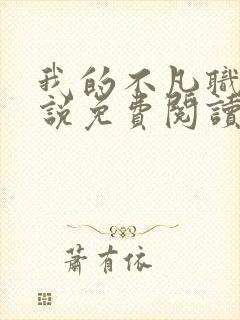 我的不凡職
說免費閱讀
蕭有依